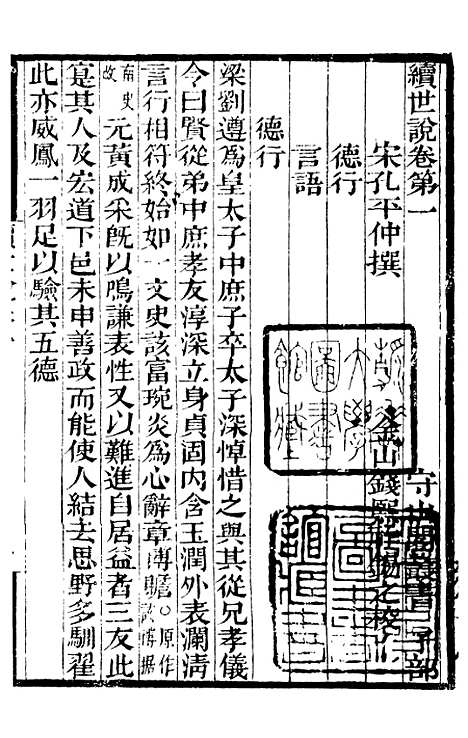 續世說卷第一
守山閣叢書 子部
宋孔平仲撰
金山錢熙祚錫之校
德行
言語
德行
梁劉遵爲皇太子中庶子卒太子深悼惜之與其從兄孝儀
令曰賢從弟中庶孝友淳深立身貞固內含玉潤外表瀾清
言行相符終始如一文史該富琬炎爲心辭章博贍○原作
誤博據
南史
改元黃成采旣以鳴謙表性又以難進自居益者三友此
寔其人及宏道下邑未申善政而能使人結去思野多馴翟
此亦威鳳一羽足以驗其五德